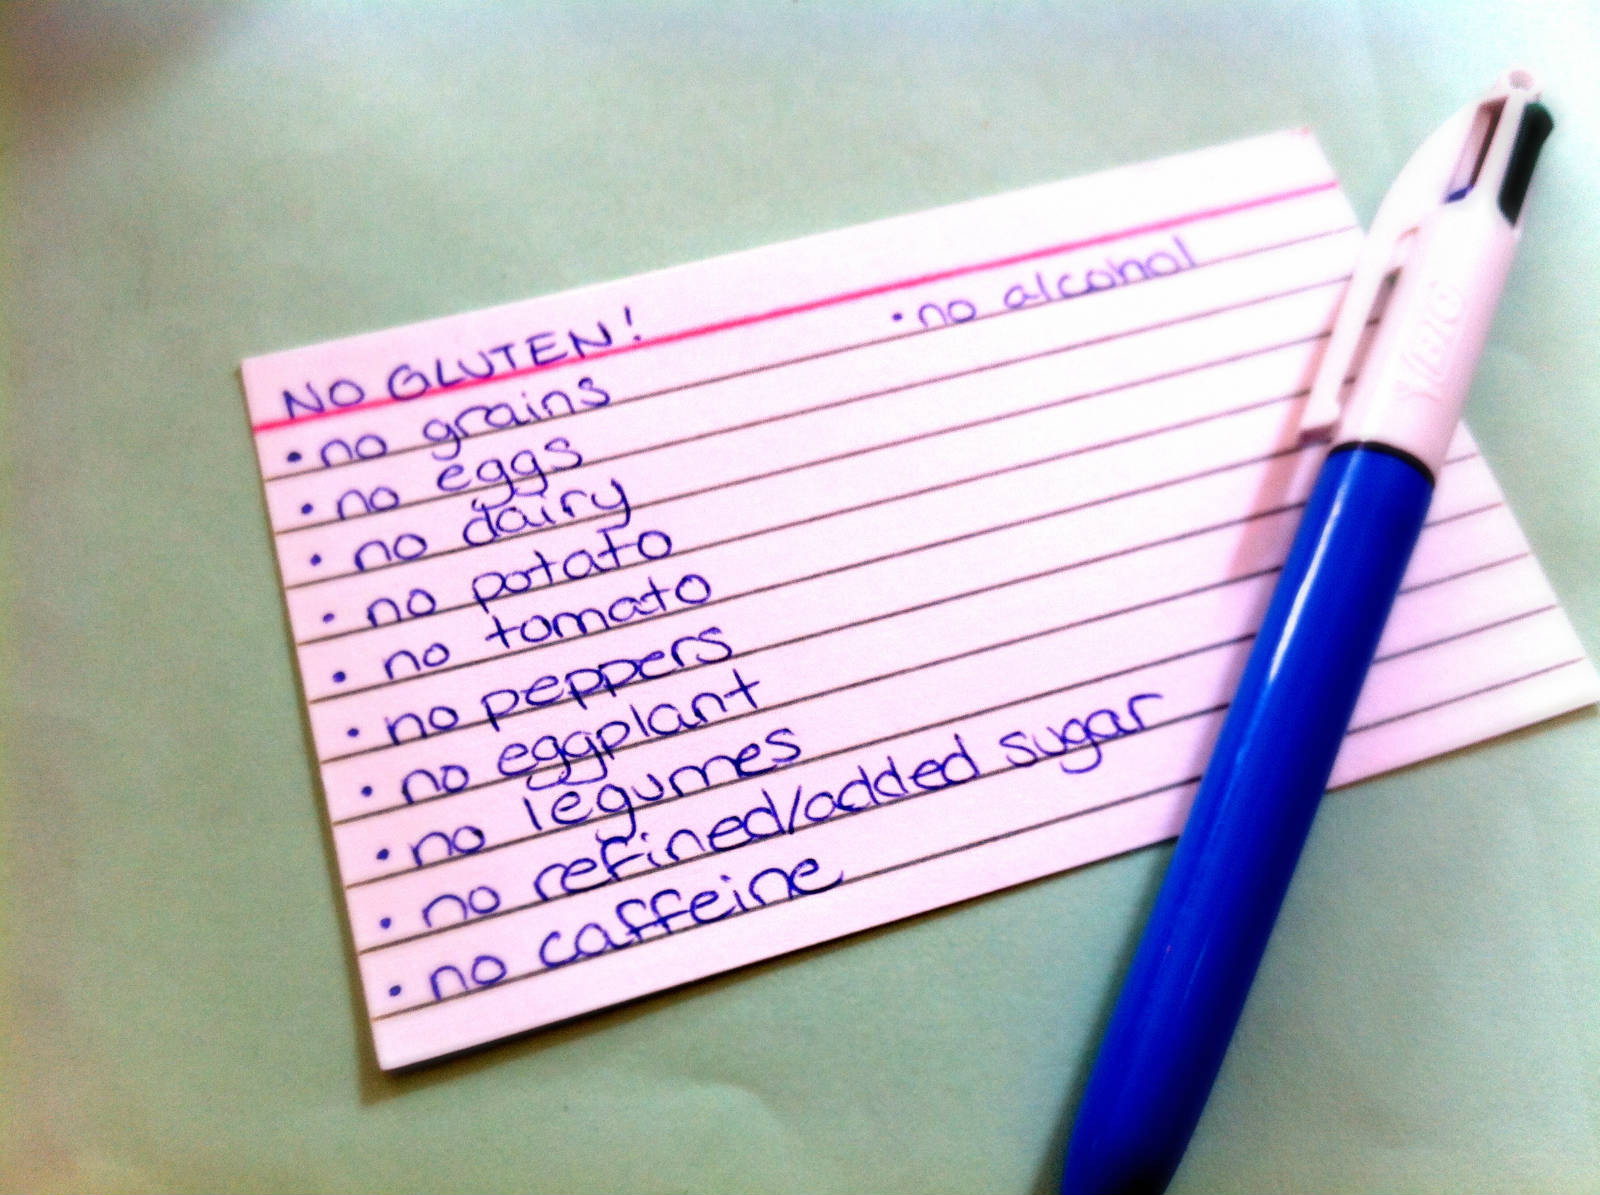 NO GLUTEN!
• no grains
• no eggs
• no dairy
• no potato
• no tomato
• no peppers
• no eggplant
• no legumes
• no refined/added sugar
• no caffeine
• no alcohol
BIC